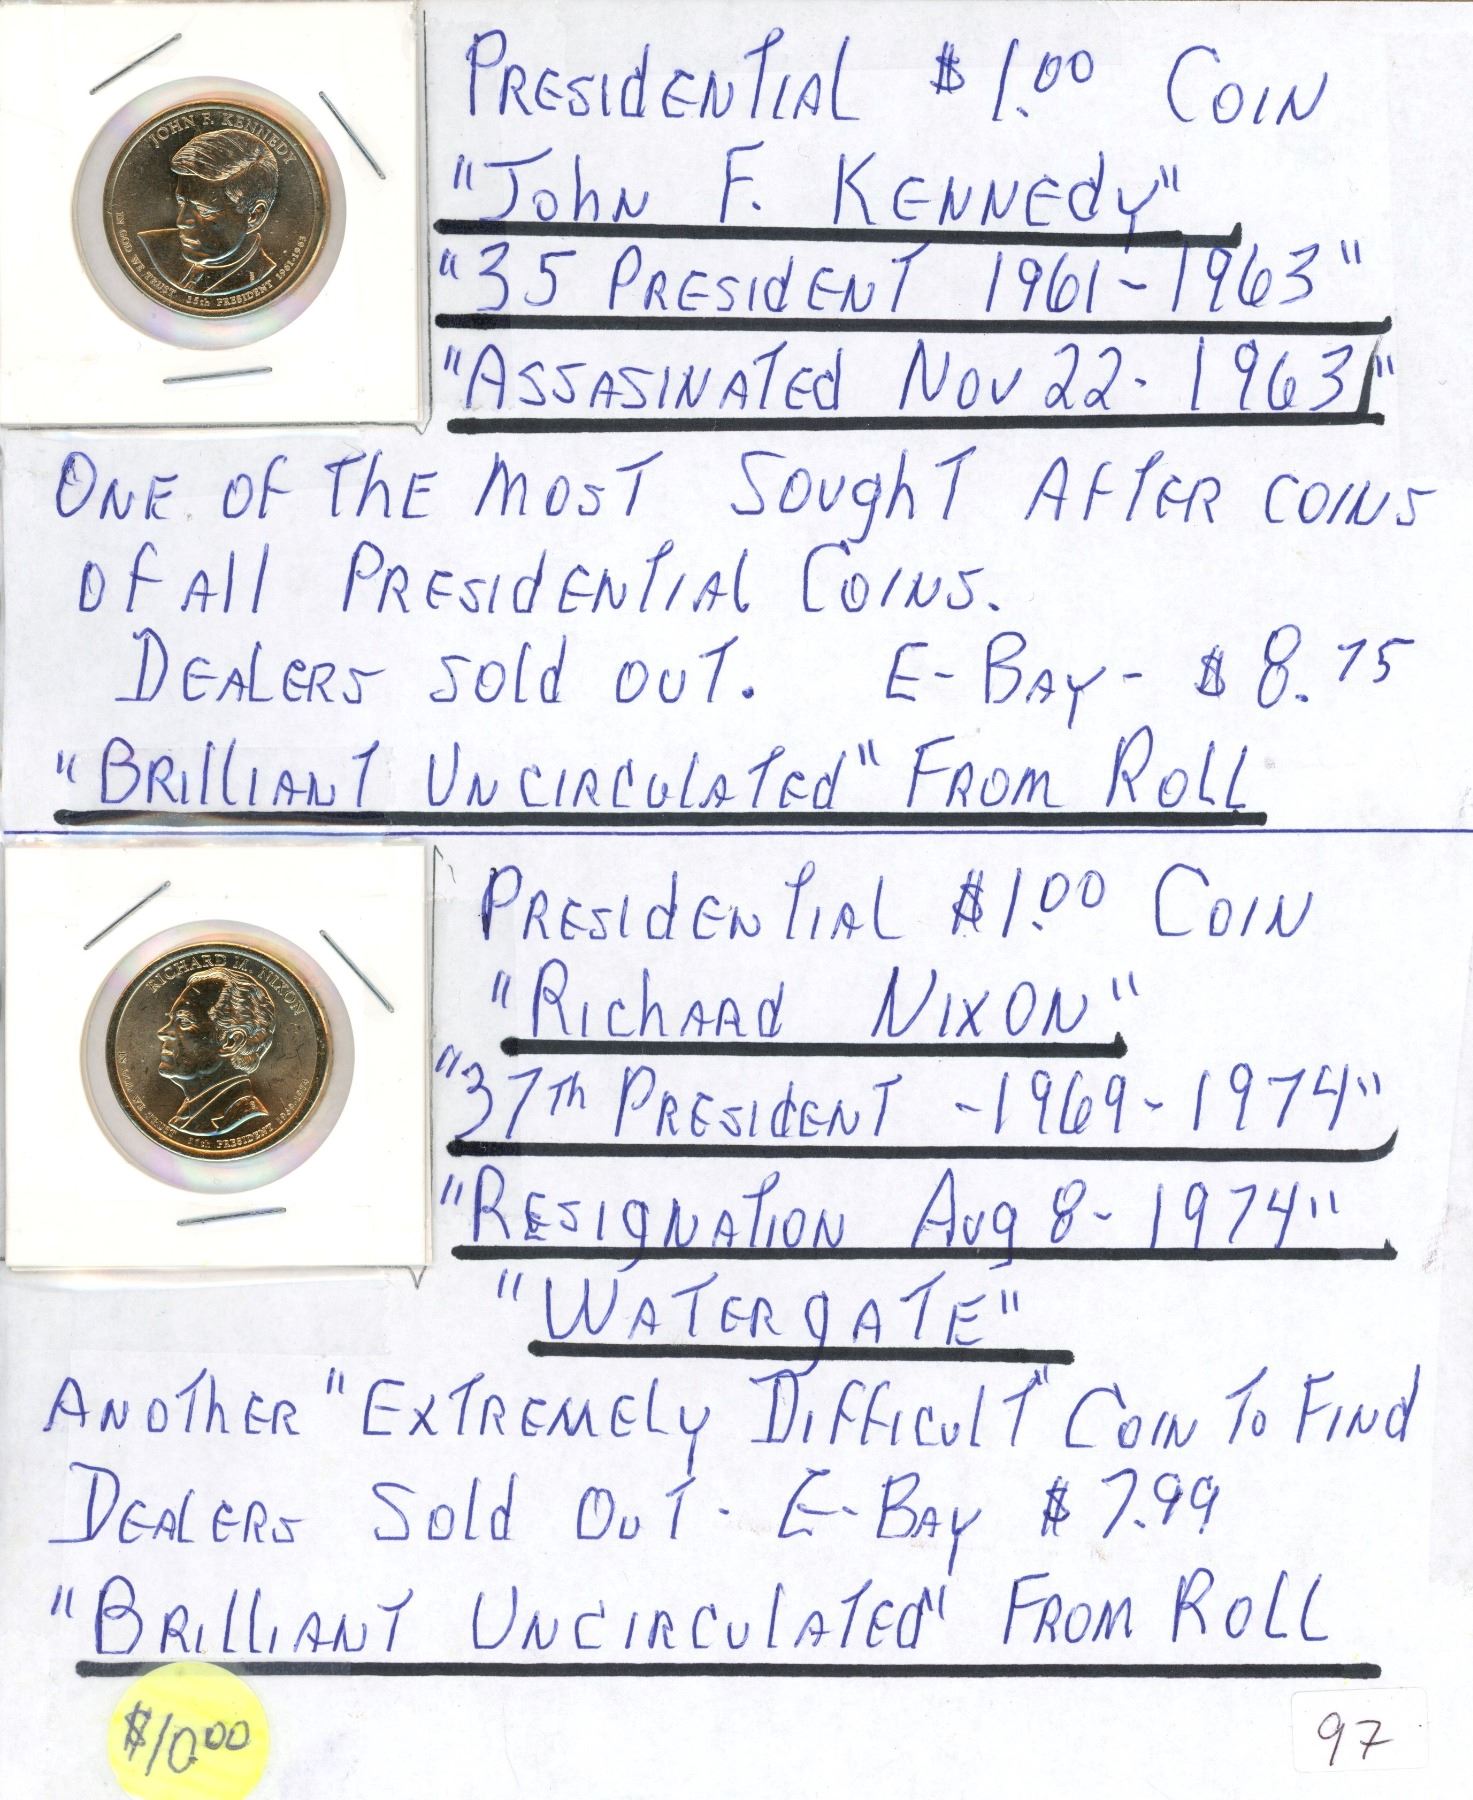 JOHN F. KENNEDY
IN GOD WE TRUST 35th PRESIDENT 1961-1963
PRESIdENTIAL $1.00 COIN
"JohN F. KENNEdy"
"35 PRESIdENT 1961-1963"
"ASSASINATEd Nov 22- 1963"
ONE OF ThE MOST SoughT AFTER COINS
OF All PRESIdENTIAL COINS.
DEALERS Sold OUT. E-BAy- $8.75
"BRIllIANT UNCIRCULATEd" FROM ROLL
RICHARD M. NIXON
IN GOD WE TRUST 37th PRESIDENT 1969-1974
PRESIdENTIAL $1.00 COIN
"RIchARd NIXON"
"37Th PRESIdENT -1969-1974"
"RESIgNATION Aug 8- 1974"
"WATERgATE"
ANOThER "EXTREMELy DIFFIculT" COIN To FINd
DEALERS Sold OuT- E-BAy $7.99
"BRIllIANT UNCIRCulATEd" FROM ROLL
$10.00
97